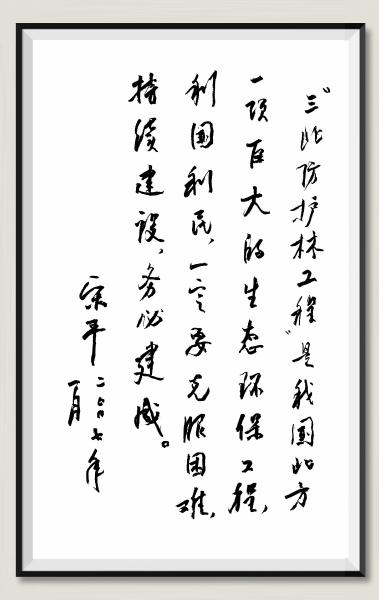 “三北防护林工程”是我国北方
一项巨大的生态环保工程，
利国利民，一定要克服困难，
持续建设，务必建成。
宋平 二〇〇七年
一月